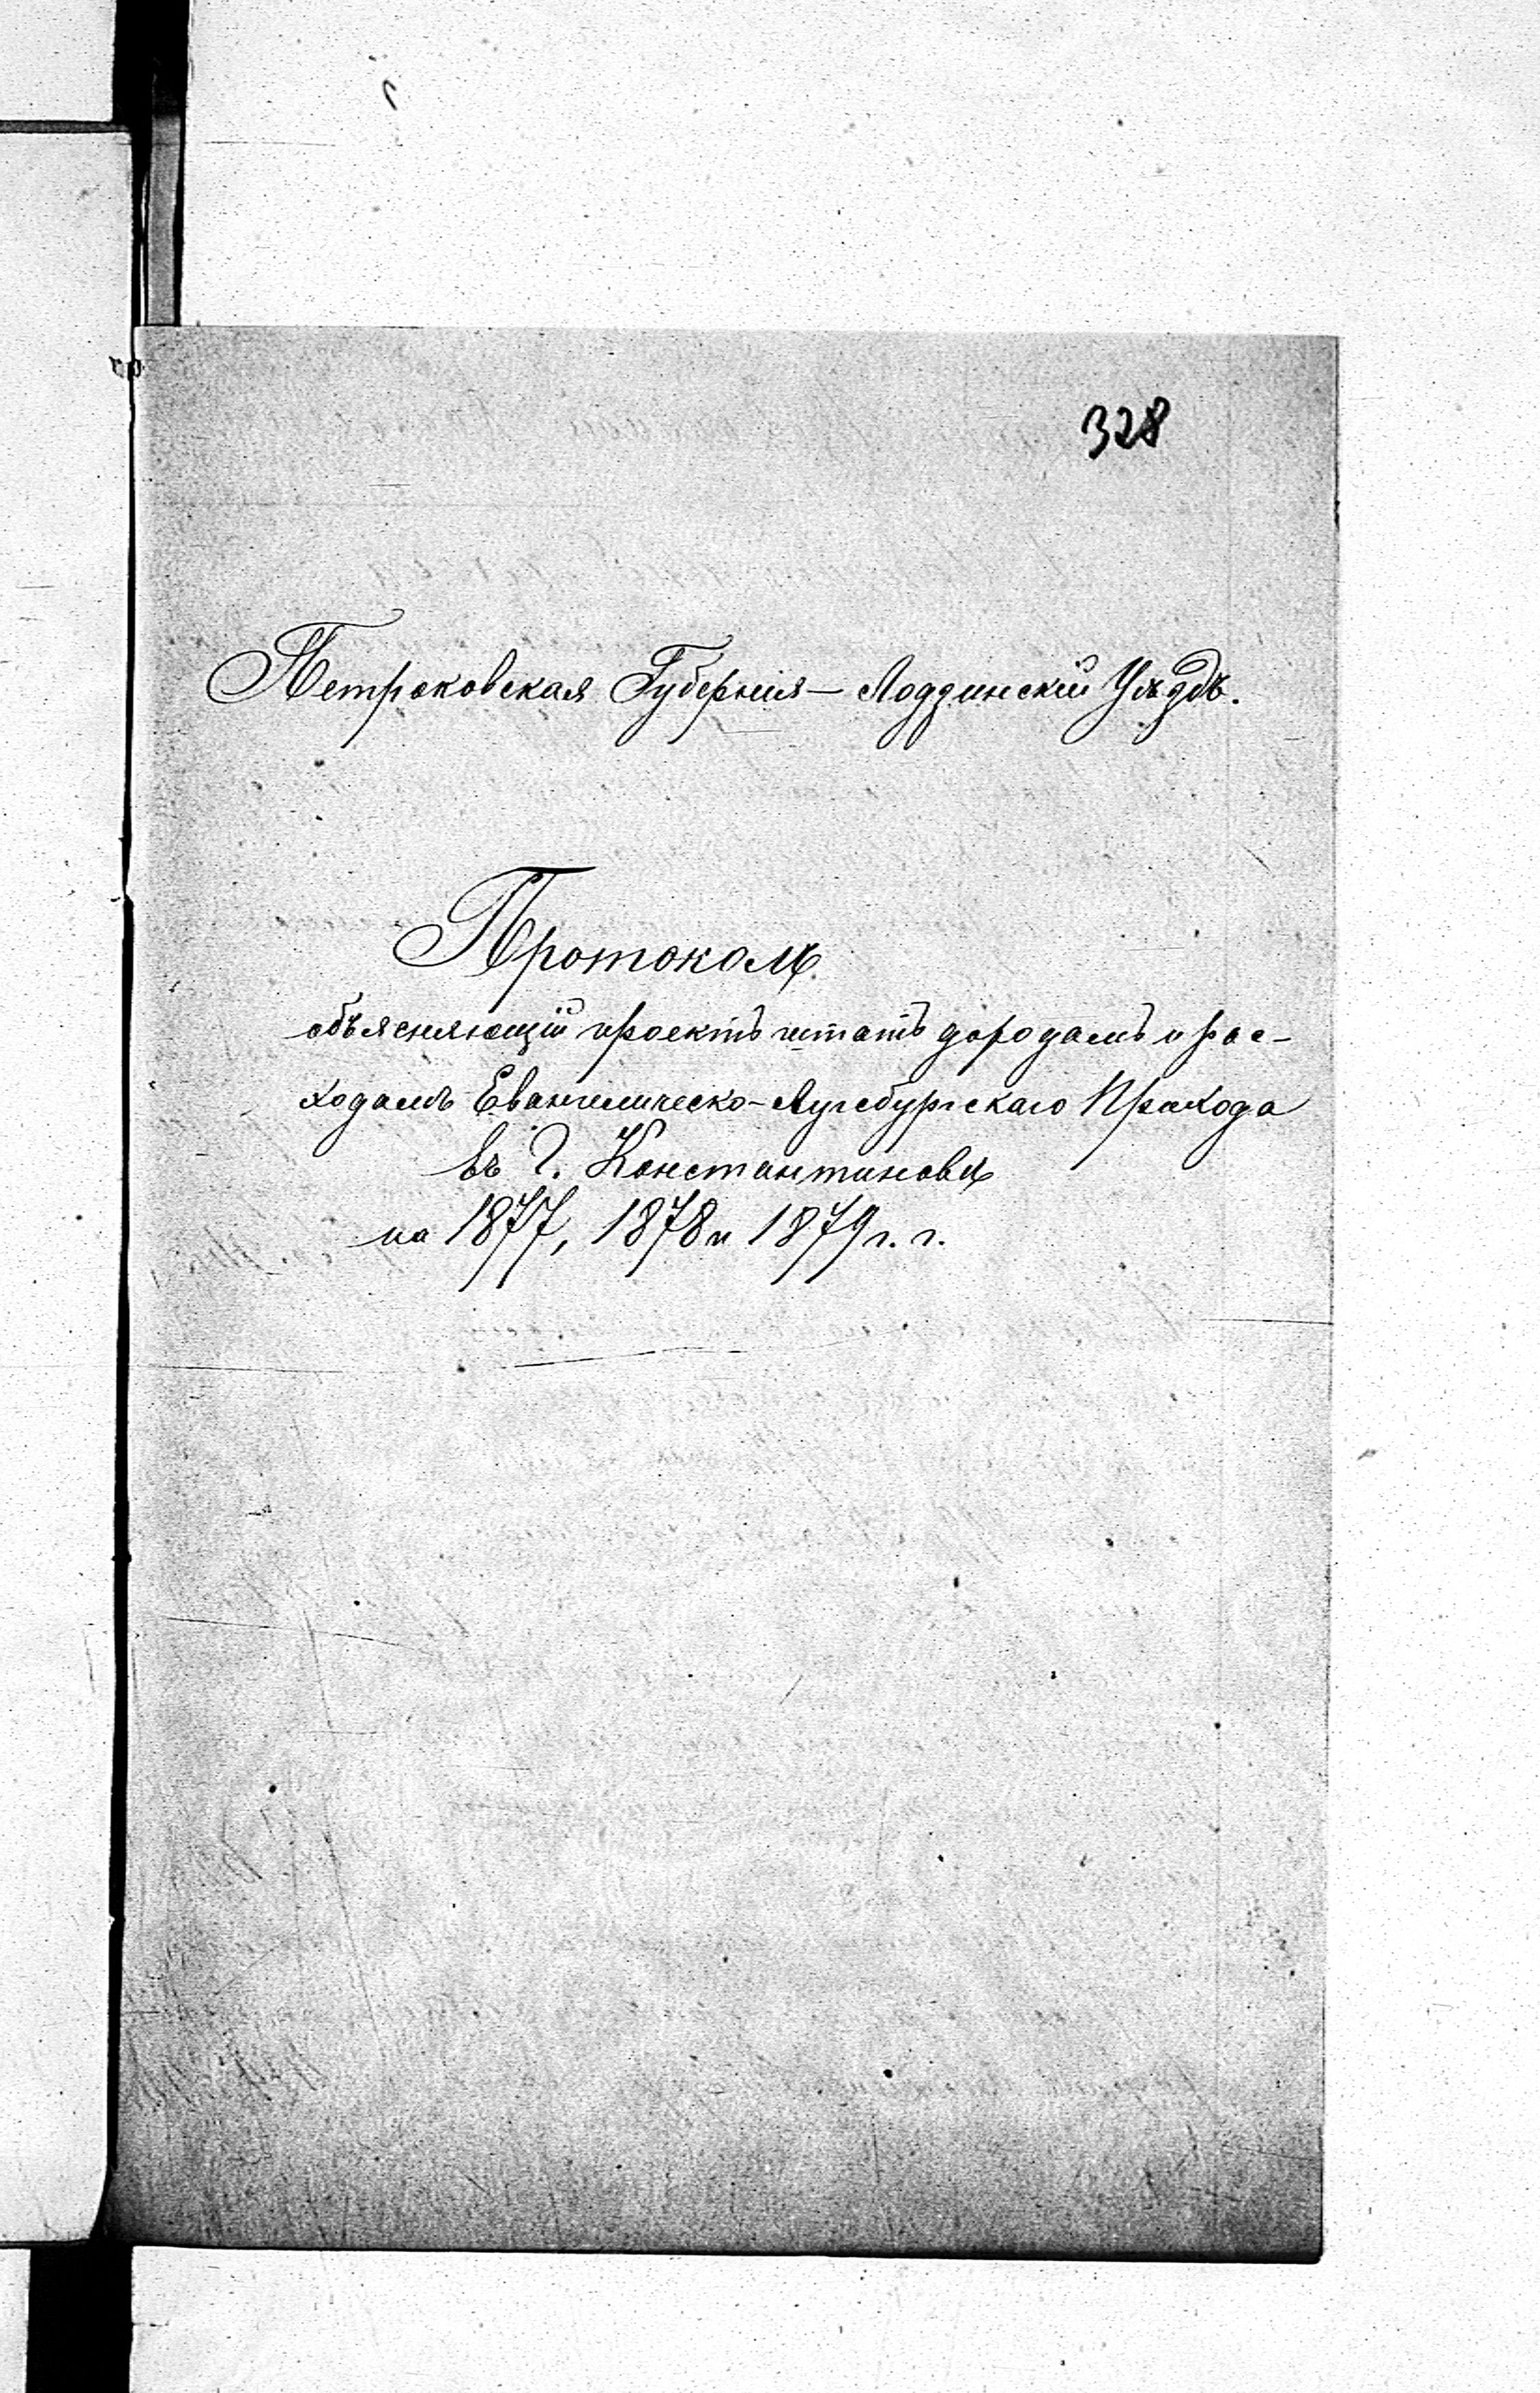 328
Петроковская Губернія — Лодзинскій Уѣздъ.
Протоколъ
объясняющій проектъ штатъ дородамъ и рас-
ходамъ Евангелическо-Аугсбургскаго Прихода
въ г. Константиновѣ
на 1877, 1878 и 1879 г. г.